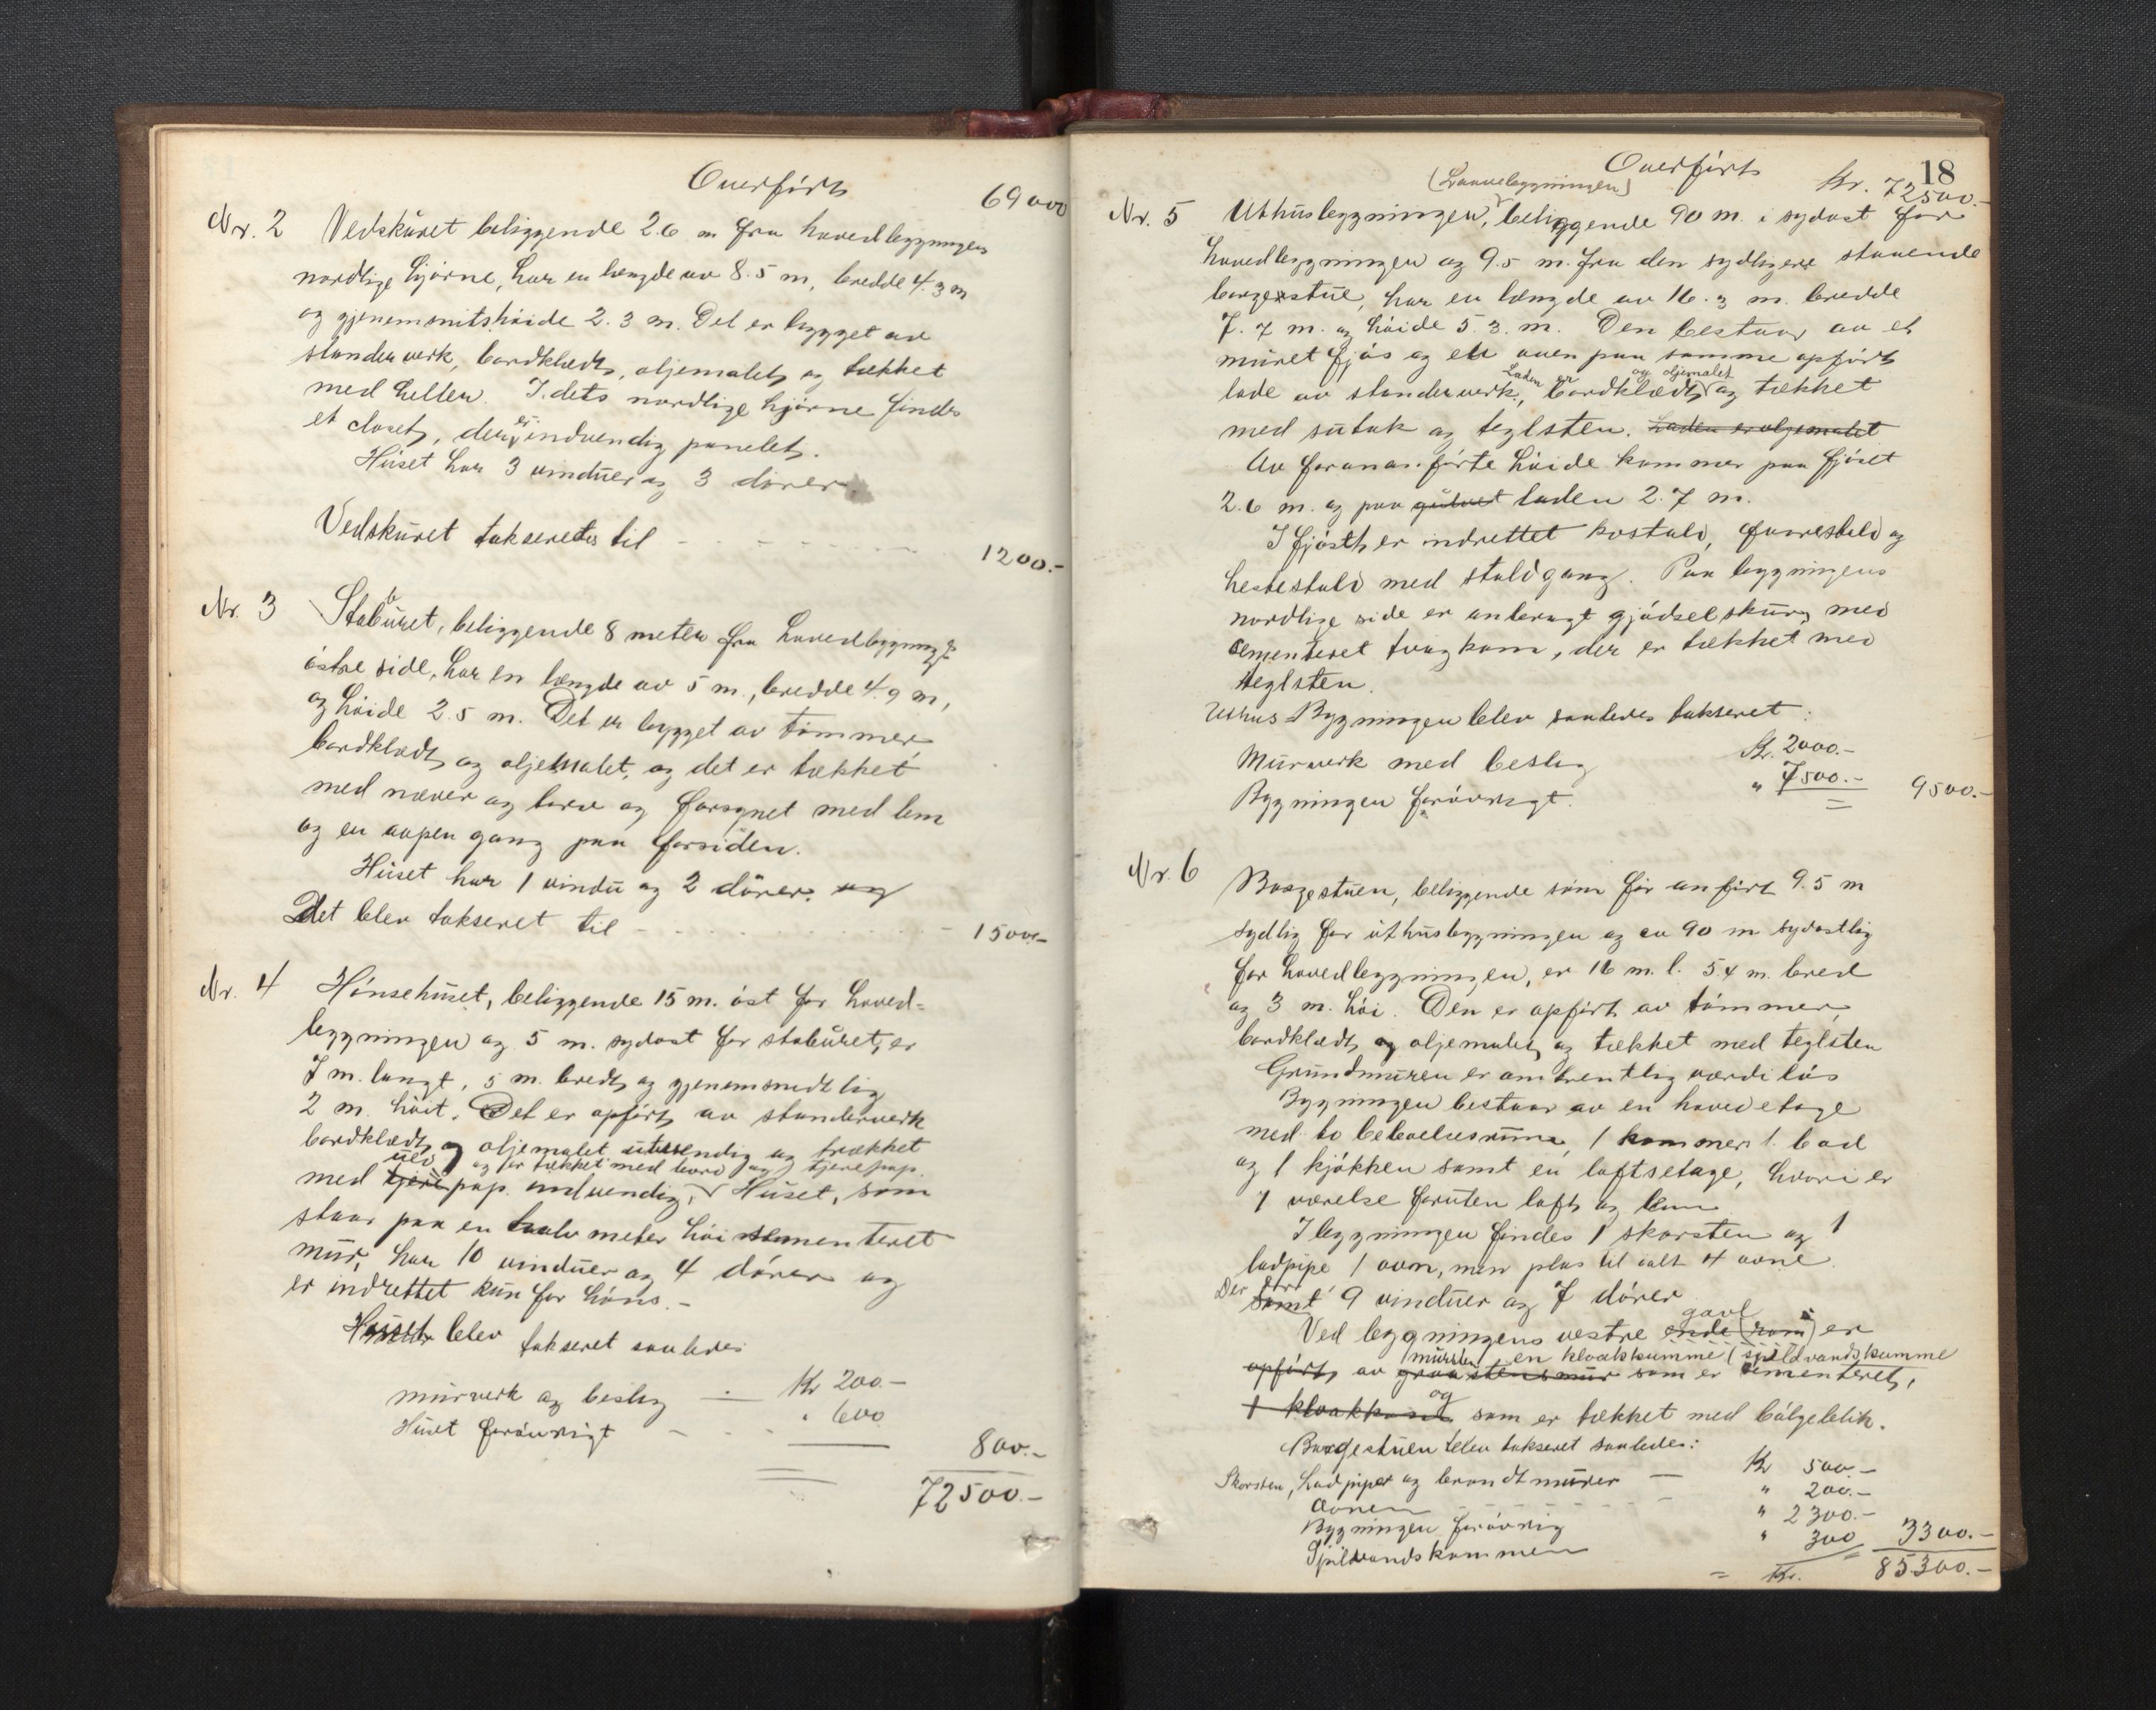 Overført
69000
Nr. 2 Vedskuret beliggende 2.6 m fra hovedbygningens
nordlige hjørne, har en længde av 8.5 m, bredde 4.3 m
og gjenemsnitshøide 2.3 m. Det er bygget av
stenderverk, bordklædt, oljemalet og tækket
med heller. I dets nordlige hjørne findes
et closet, der er indvendig panelet.
Huset har 3 vinduer og 3 dører.
Vedskuret takseredes til - - - - - 1200.-
Nr. 3 Stabburet, beliggende 8 meter fra hovedbygningens
østre side, har en længde av 5 m., bredde 4.9 m,
og høide 2.5 m. Det er bygget av tømmer,
bordklædt og oljemalet, og det er tækket
med never og torv og forsynet med lem
og en aapen gang paa forsiden.
Huset har 1 vindu og 2 dører. og
Det blev taksert til - - - - - 1500.-
Nr. 4 Hønsehuset, beliggende 15 m. øst for hoved-
bygningen og 5 m. sydost for staburet, er
7 m. langt, 5 m. bredt og gjenemsnedtlig
2 m. høit. Det er opført av stenderverk
bordklædt og oljemalet utvendig og trækket
uld og er tækket med bord og tjærepap.
med tjære pap. indvendig. Huset, som
staar paa en halv meter høi sementeret
mur, har 10 vinduer og 4 dører og
er indrettet kun for høns. -
Huset blev taksert saaledes
murverk og beslag - Kr 200.-
Huset forøvrigt - - - " 600
800.-
72500.-
18
Overført
Kr. 72500.-
(Laavebygningen)
Nr. 5 Uthusbygningen, beliggende 90 m. i sydost for
hovedbygningen og 9.5 m. fra den sydligere staaende
borgestue, har en længde av 16.3 m. bredde
7.7 m. og høide 5.3. m. Den bestaar av et
muret fjøs og en oven paa samme opført
Laden er og oljemalet
lade av stenderverk, bordklædt og tækket
med sutak og teglsten. Laden er oljemalet
Av forananførte høide kommer paa fjøset
2.6 m. og paa gulvet laden 2.7 m.
I fjøset er indrettet kostald, faarestald og
hestestald med staldgang. Paa bygningens
nordlige side er anbragt gjødselskur, med
cementeret tvagkom, der er tækket med
teglsten.
Uthus Bygningen blev saaledes taksert:
Murverk med beslag Kr. 2000.-
Bygningen forøvrigt. " 7500.- 9500.-
Nr. 6 Borgestuen, beliggende som før anført 9.5 m
sydlig for uthusbygningen og ca 90 m sydostlig
for hovedbygningen, er 16 m. l. 5.4 m. bred
og 3 m. høi. Den er opført av tømmer,
bordklædt og oljemalet og tækket med teglsten
Grundmuren er omtrentlig værdiløs
Bygningen bestaar av en hovedetage
med to beboelsesrum, 1 kammer 1. bad
og 1 kjøkken samt en loftsetage, hvori er
1 værelse foruten loft og lem
I bygningen findes 1 skorsten og 1
ludpipe 1 ovn, men plas til ialt 4 ovne.
Der er
samt 9 vinduer og 7 dører
gavl
Ved bygningens vestre ende (rom) er
mursten en kloakkumme (spildvandskumme
opført av graastensmur som er cementeret,
og
1 kloakkum som er tækket med bølgeblik.
Borgestuen blev taksert saaledes:
Skorsten, ludpiper og brandtmurer - Kr 500.-
Ovnen - - - - " 200.-
Bygningen forøvrig " 2300.-
Spildvandskummen " 300 3300.-
= Kr. 85300.-